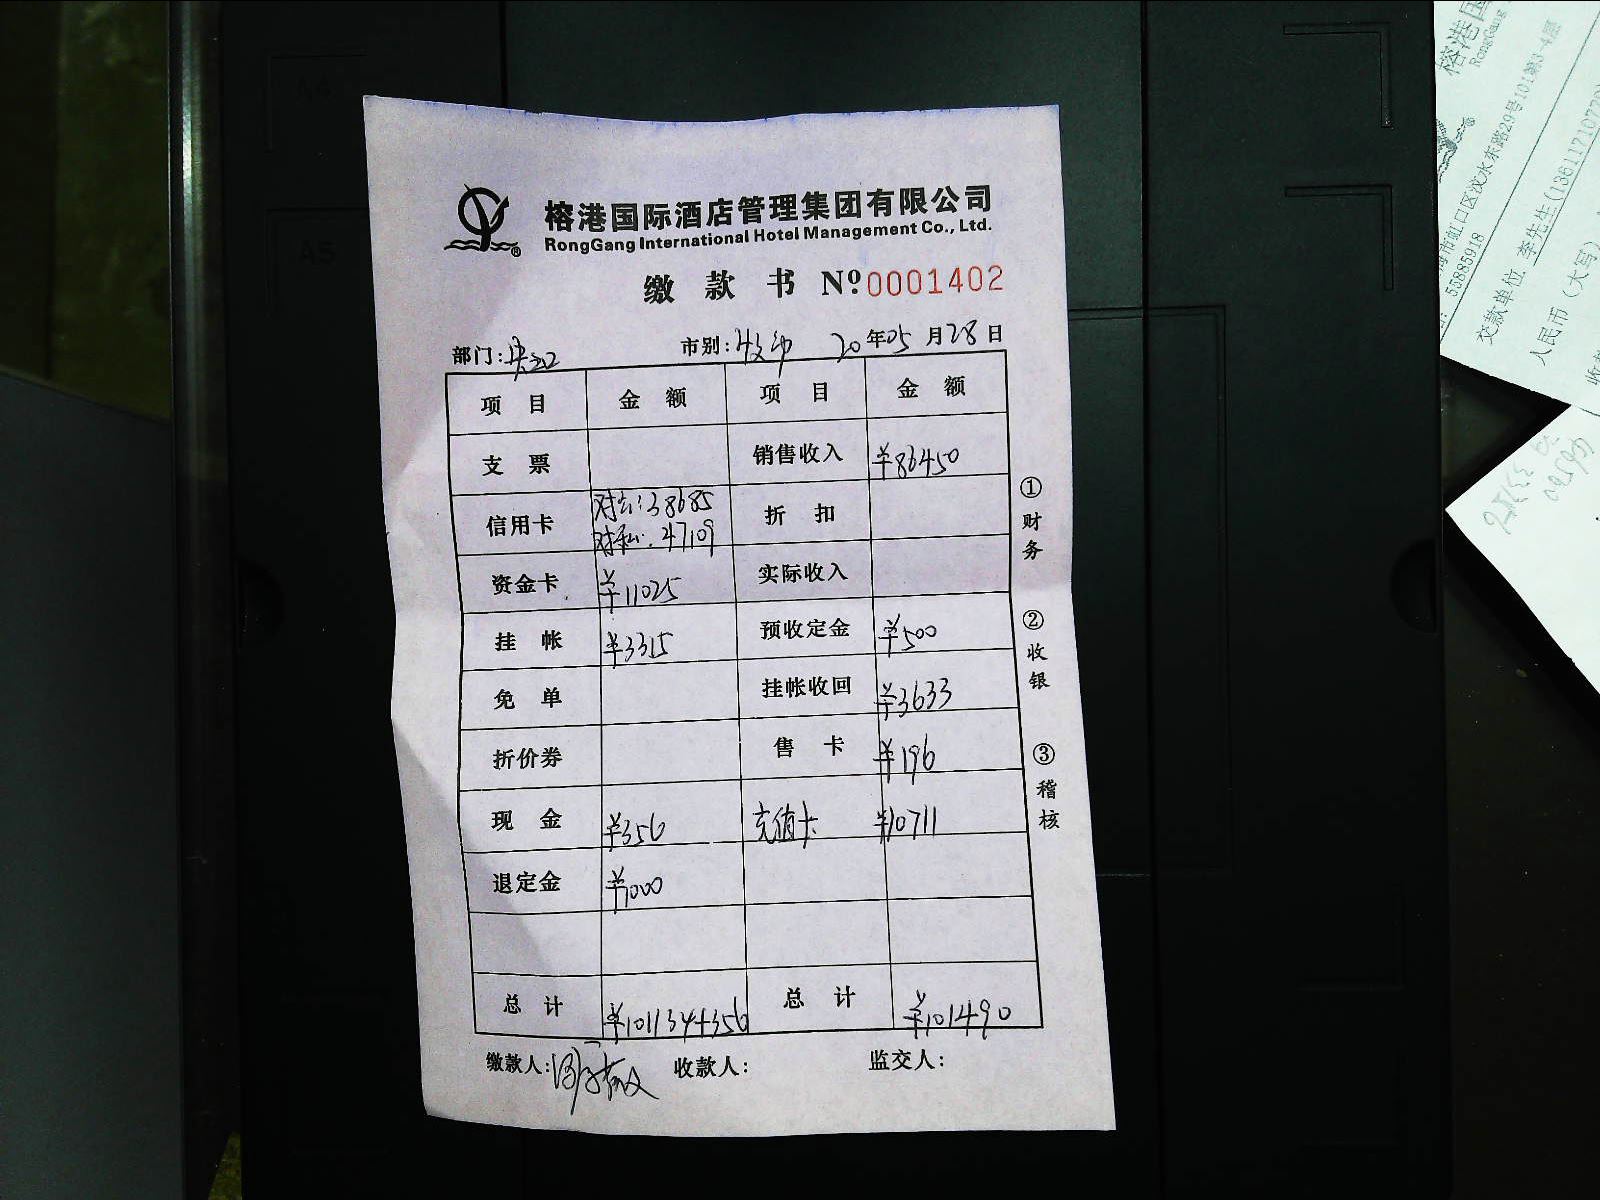 榕港国际酒店管理集团有限公司
RongGang International Hotel Management Co., Ltd.
缴 款 书 Nº0001402
部门: 市别: 20 年 05 月 28 日
项 目 金 额 项 目 金 额
支 票 销售收入 ¥86450
信用卡 对公:38685 折 扣
对私:47109
资金卡 ¥11025 实际收入
挂 帐 ¥3315 预收定金 ¥500
免 单 挂帐收回 ¥3633
折价券 售 卡 ¥196
现 金 ¥356 充值卡 ¥10711
退定金 ¥1000
总 计 ¥101134+356 总 计 ¥101490
缴款人: 收款人: 监交人:
①财务
②收银
③稽核
A5
榕港国
RongGang
海市虹口区汶水东路29号101第3-4层
55885918
交款单位 李先生(1361171077
人民币（大写）